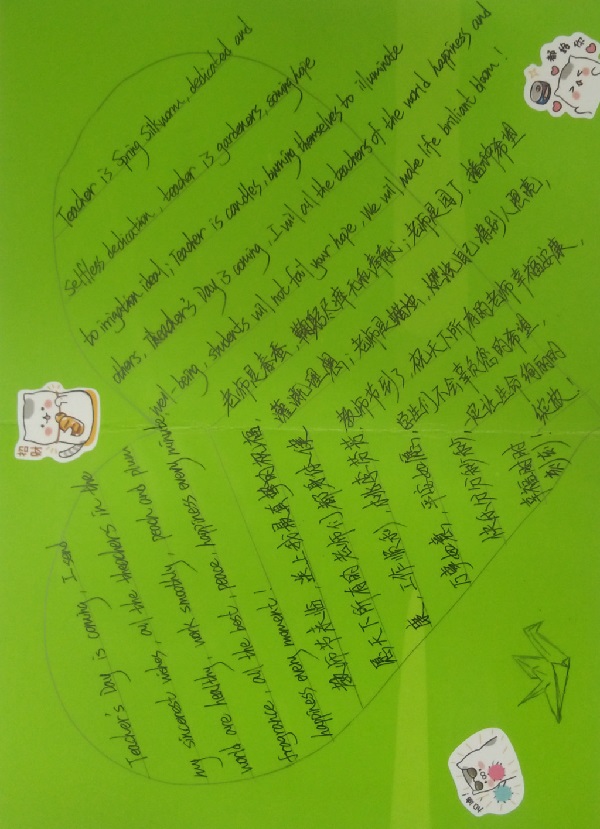 Teacher is spring silkworm, dedicated and
selfless dedication, teacher is gardeners, sowing hope
to irrigation ideal; Teacher is candles, burning themselves to illuminate
others, Theacher's Day is coming, I will all the teachers of the world happiness and
well-being, students will not fail your hope, We will make life brilliant bloom!
老师是春蚕,鞠躬尽瘁无私奉献;老师是园丁,播种希望
灌溉理想;老师是蜡烛,燃烧自己照亮别人
教师节到了,祝天下所有的老师幸福安康,
学生们不会辜负您的希望,
一定让生命绚丽的
绽放!
Teacher's Day is coming, I send
my sincerest wishes, all the theachers in the
world are healthy, work smoothly, peach and plum
fragrance, all the best, peace, happiness every minute,
happiness every moment!
教师节来临,送上我最真挚的祝福,
愿天下所有的老师们都身体健
康,工作顺利,桃李芬芳
万事如意,平安如愿,
快乐分分秒秒,
幸福时时刻刻!